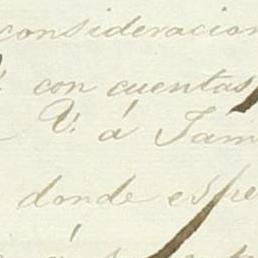 consideracion
con cuentas
V. á Tam
donde espe